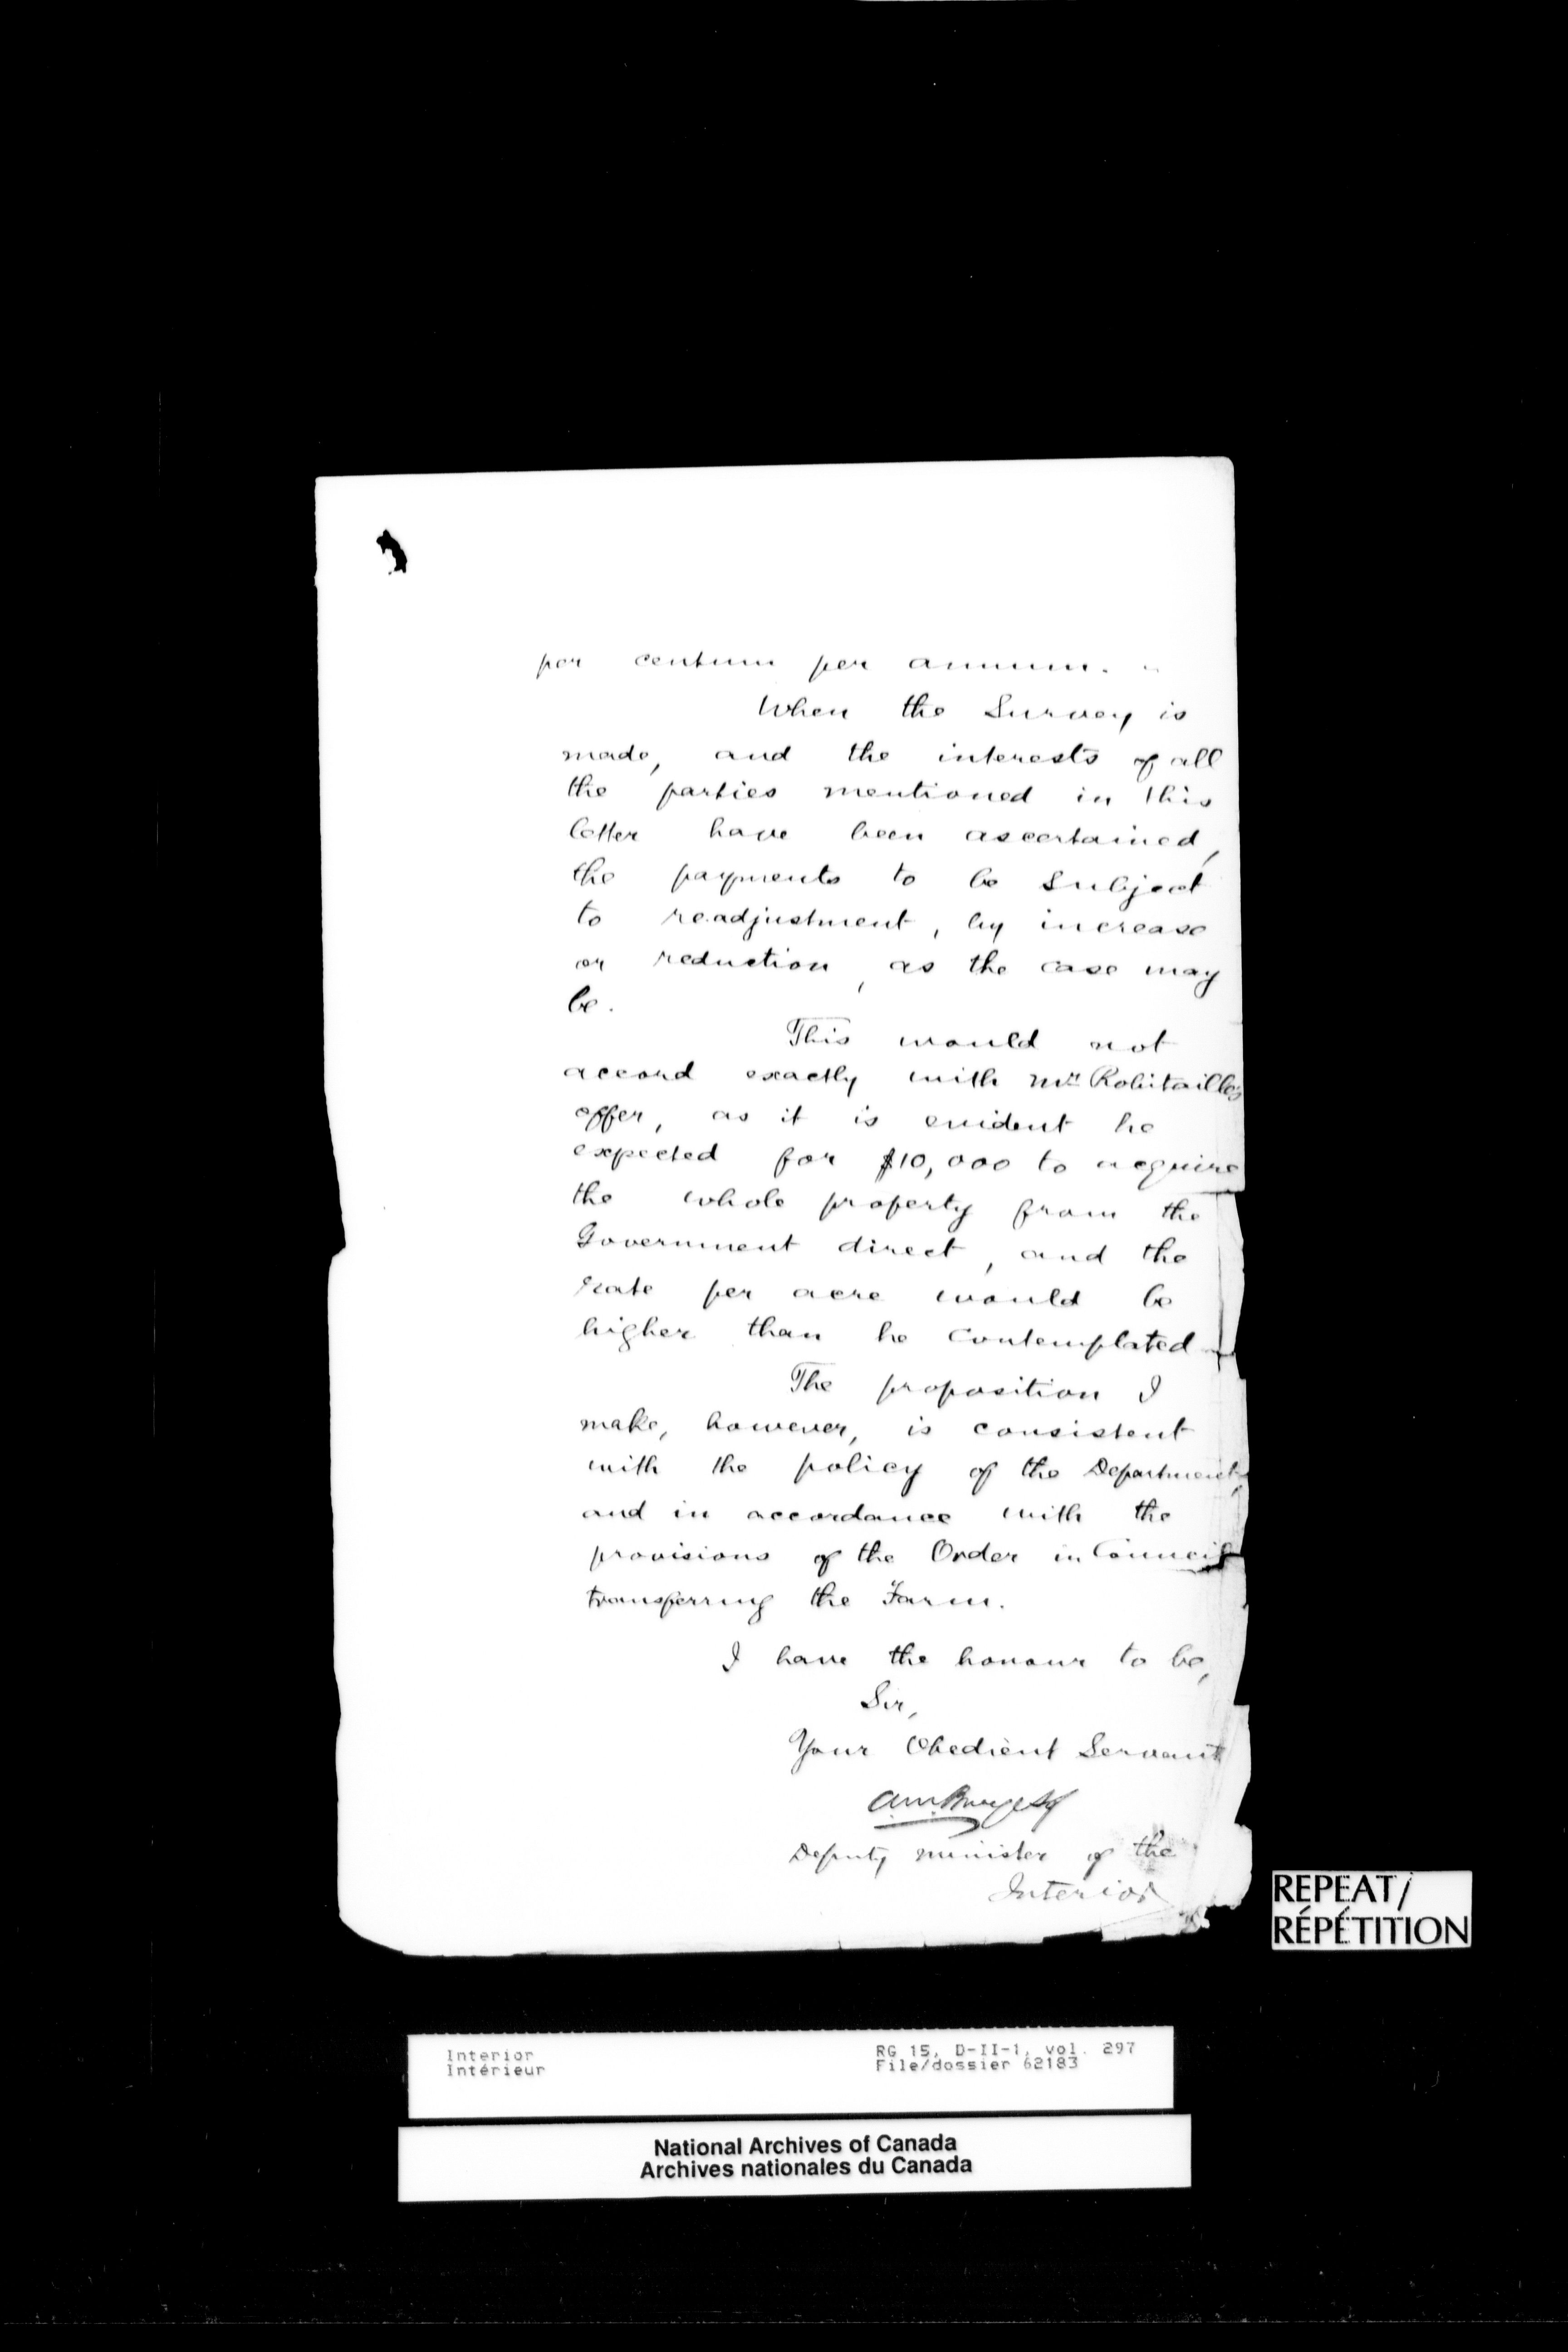 per centum per annum.
When the Survey is
made, and the interests of all
the parties mentioned in this
letter have been ascertained,
the payments to be subject
to readjustment, by increase
or reduction, as the case may
be.
This would not
accord exactly with Mr. Robitaille's
offer, as it is evident he
expected for $10,000 to acquire
the whole property from the
Government direct, and the
rate per acre would be
higher than he contemplated
The proposition I
make, however, is consistent
with the policy of the Department,
and in accordance with the
provisions of the Order in Council
transferring the Farm.
I have the honour to be,
Sir,
Your Obedient Servant
A.M. Burgess
Deputy Minister of the
Interior
REPEAT/
RÉPÉTITION
Interior RG 15, D-II-1, vol. 297
Intérieur File/dossier 62183
National Archives of Canada
Archives nationales du Canada